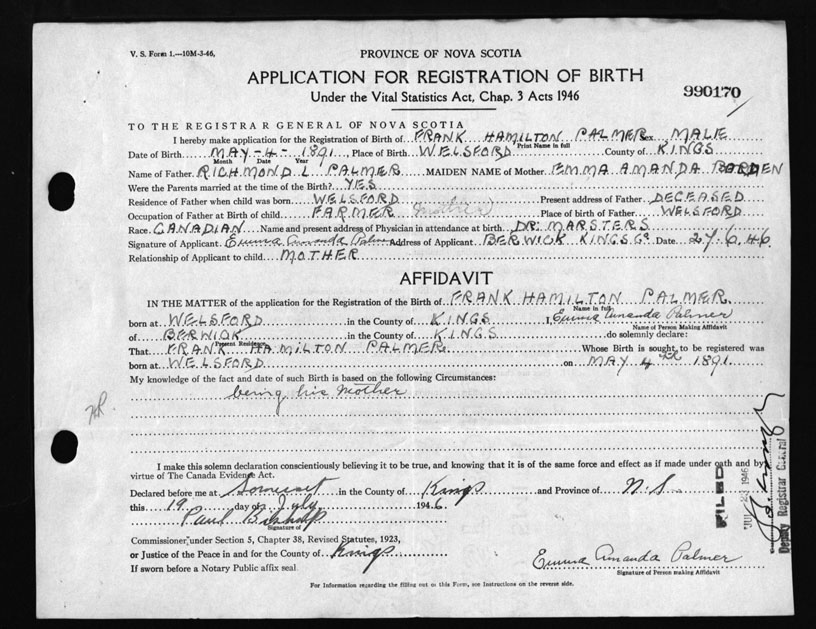 V. S. Form 1.—10M-3-46,
PROVINCE OF NOVA SCOTIA
APPLICATION FOR REGISTRATION OF BIRTH
Under the Vital Statistics Act, Chap. 3 Acts 1946
990170
TO THE REGISTRAR GENERAL OF NOVA SCOTIA
I hereby make application for the Registration of Birth of FRANK HAMILTON PALMER Sex MALE
Print Name in full
Date of Birth MAY-4-1891, Place of Birth WELSFORD County of KINGS
Month Date Year
Name of Father RICHMOND L PALMER MAIDEN NAME of Mother EMMA AMANDA BORDEN
Were the Parents married at the time of the Birth? YES
Residence of Father when child was born WELSFORD Present address of Father DECEASED
Occupation of Father at Birth of child FARMER Place of Birth of Father WELSFORD
Race CANADIAN Name and present address of Physician in attendance at birth DR. MARSTERS
Signature of Applicant Emma Amanda Palmer Address of Applicant BERWICK KINGS Co. Date 27.6.46.
Relationship of Applicant to child MOTHER
AFFIDAVIT
IN THE MATTER of the application for the Registration of the Birth of FRANK HAMILTON PALMER
Name in full
born at WELSFORD in the County of KINGS I, Emma Amanda Palmer
Name of Person Making Affidavit
of BERWICK in the County of KINGS do solemnly declare:
Present Residence
That FRANK HAMILTON PALMER Whose Birth is sought to be registered was
born at WELSFORD on MAY 4th 1891
My knowledge of the fact and date of such Birth is based on the following Circumstances:
being his Mother
I make this solemn declaration conscientiously believing it to be true, and knowing that it is of the same force and effect as if made under oath and by
virtue of The Canada Evidence Act.
Declared before me at Somerset in the County of Kings and Province of N.S.
this 19 day of July 1946
Paul Bishop
Signature of
Commissioner under Section 5, Chapter 38, Revised Statutes, 1923,
or Justice of the Peace in and for the County of Kings
If sworn before a Notary Public affix seal
Emma Amanda Palmer
Signature of Person making Affidavit
For Information regarding the filling out of this Form, see Instructions on the reverse side.
FILED
JUL 23 1946
Deputy Registrar General